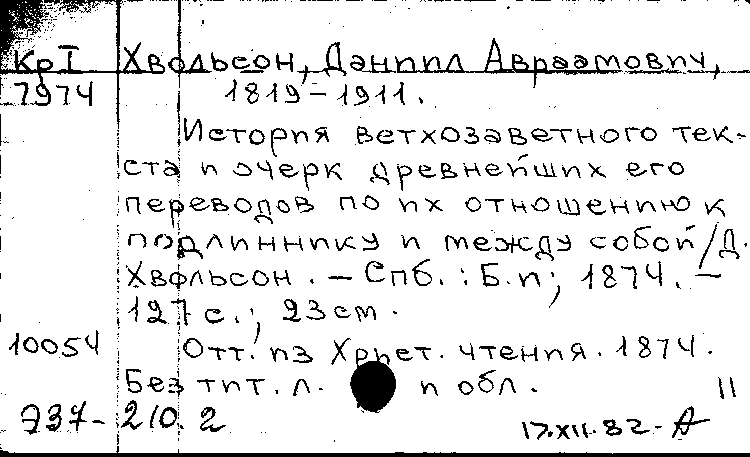 Кр I Хвольсон, Даниил Авраамович,
7974 1819-1911.
История ветхозаветного тек-
ста и очерк древнейших его
переводов по их отношению к
подлиннику и между собой / Д.
Хвольсон. - Спб. : Б.и., 1874. -
127 с. ; 23 см.
10054 Отт. из Христ. чтения. 1874.
Без тит. л. и обл. 11
Э37-210.2
17.XII.82.